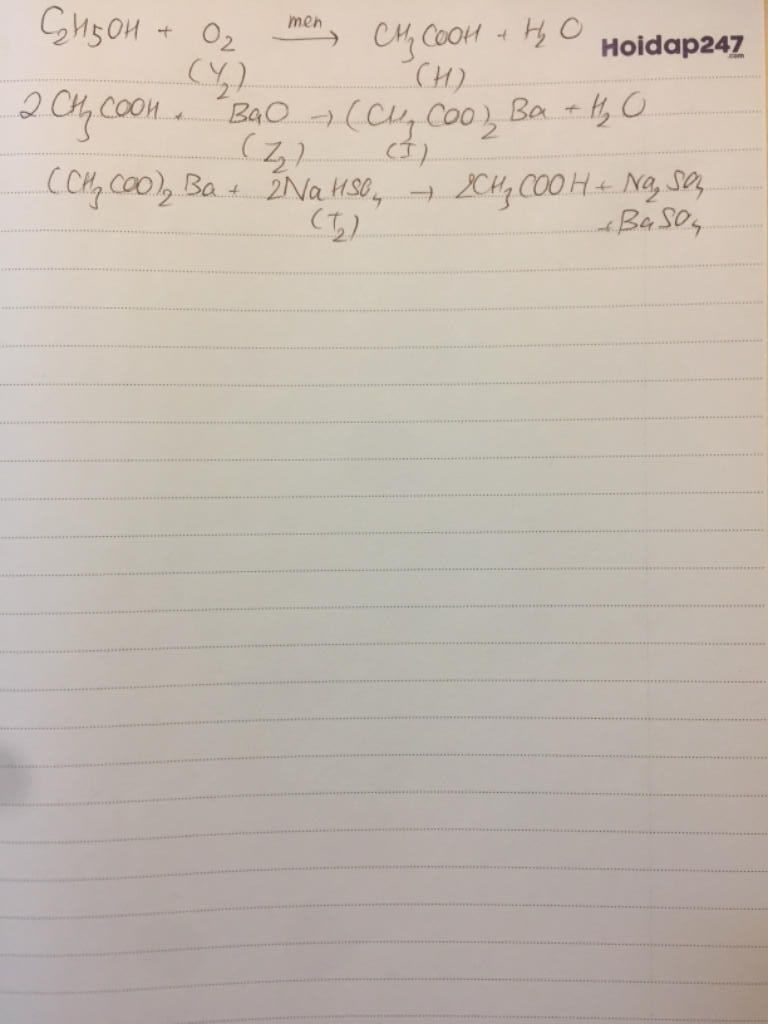 C₂H5OH + O₂ men → CH₃COOH + H₂O
Hoidap247.com
(Y₂) (H)
2CH₃COOH + BaO → (CH₃COO)₂Ba + H₂O
(Z₂) (I)
(CH₃COO)₂Ba + 2NaHSO₄ → 2CH₃COOH + Na₂SO₄
(T₂) + BaSO₄